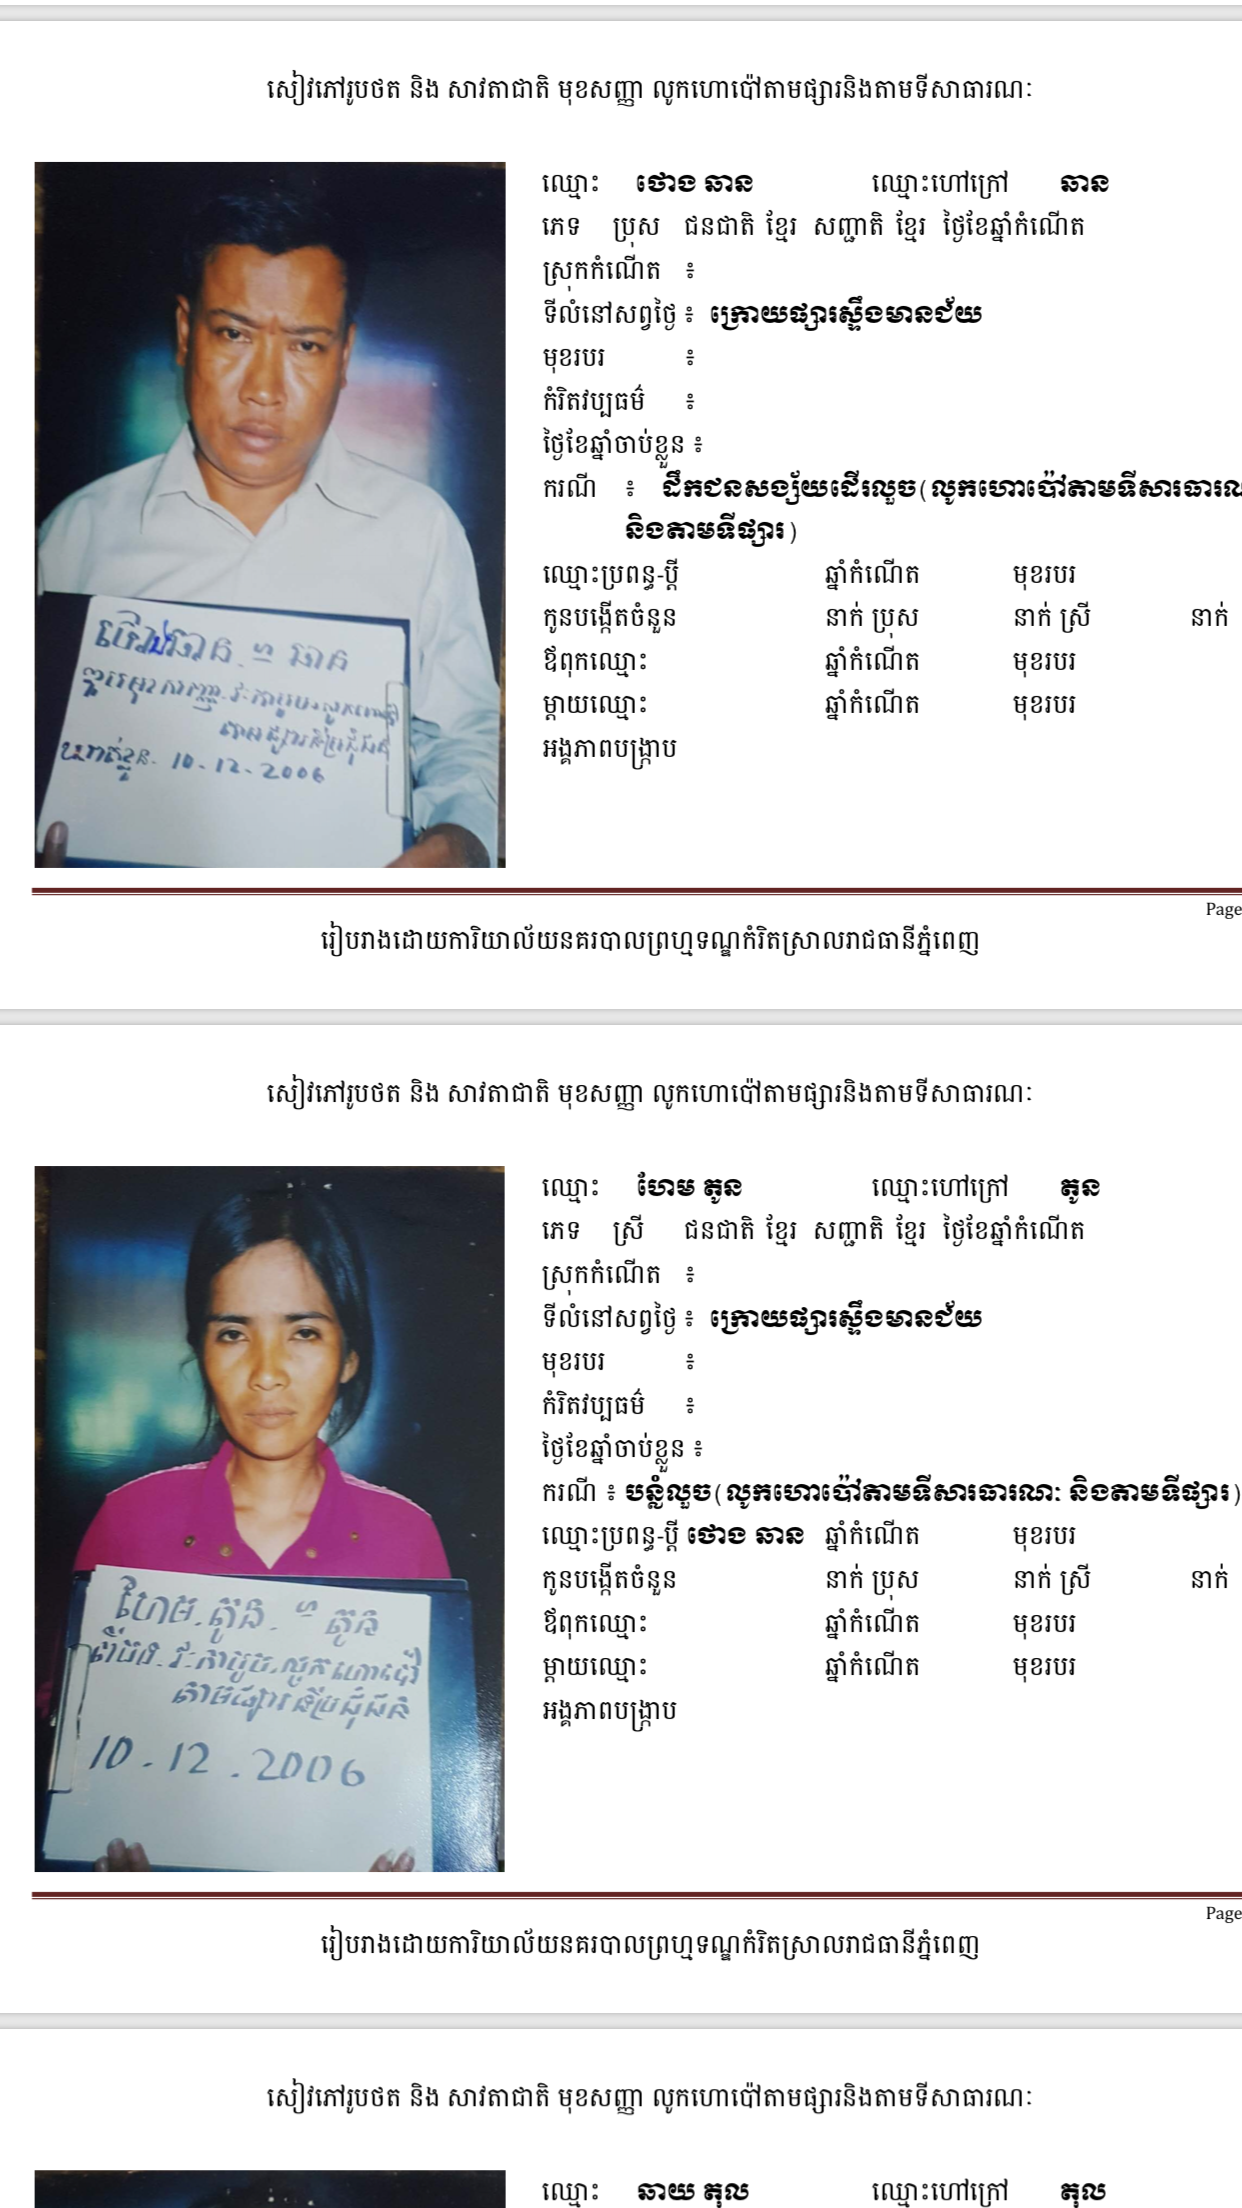 សៀវភៅរូបថត និង សាវតាជាតិ មុខសញ្ញា លូកហោប៉ៅតាមផ្សារនិងតាមទីសាធារណៈ
ឈ្មោះ ថោង ឆាន ឈ្មោះហៅក្រៅ ឆាន
ភេទ ប្រុស ជនជាតិ ខ្មែរ សញ្ជាតិ ខ្មែរ ថ្ងៃខែឆ្នាំកំណើត
ស្រុកកំណើត ៖
ទីលំនៅសព្វថ្ងៃ ៖ ក្រោយផ្សារស្ទឹងមានជ័យ
មុខរបរ ៖
កំរិតវប្បធម៌ ៖
ថ្ងៃខែឆ្នាំចាប់ខ្លួន ៖
ករណី ៖ ដឹកជនសង្ស័យដើរលួច(លូកហោប៉ៅតាមទីសារធារណ
និងតាមទីផ្សារ)
ឈ្មោះប្រពន្ធ-ប្ដី ឆ្នាំកំណើត មុខរបរ
កូនបង្កើតចំនួន នាក់ ប្រុស នាក់ ស្រី នាក់
ឪពុកឈ្មោះ ឆ្នាំកំណើត មុខរបរ
ម្ដាយឈ្មោះ ឆ្នាំកំណើត មុខរបរ
អង្គភាពបង្ក្រាប
ឆាន ហ ឆាន
10-12-2006
Page
រៀបរាងដោយការិយាល័យនគរបាលព្រហ្មទណ្ឌកំរិតស្រាលរាជធានីភ្នំពេញ
សៀវភៅរូបថត និង សាវតាជាតិ មុខសញ្ញា លូកហោប៉ៅតាមផ្សារនិងតាមទីសាធារណៈ
ឈ្មោះ ហែម តូន ឈ្មោះហៅក្រៅ តូន
ភេទ ស្រី ជនជាតិ ខ្មែរ សញ្ជាតិ ខ្មែរ ថ្ងៃខែឆ្នាំកំណើត
ស្រុកកំណើត ៖
ទីលំនៅសព្វថ្ងៃ ៖ ក្រោយផ្សារស្ទឹងមានជ័យ
មុខរបរ ៖
កំរិតវប្បធម៌ ៖
ថ្ងៃខែឆ្នាំចាប់ខ្លួន ៖
ករណី ៖ បន្លំលួច(លូកហោប៉ៅតាមទីសារធារណៈ និងតាមទីផ្សារ)
ឈ្មោះប្រពន្ធ-ប្ដី ថោង ឆាន ឆ្នាំកំណើត មុខរបរ
កូនបង្កើតចំនួន នាក់ ប្រុស នាក់ ស្រី នាក់
ឪពុកឈ្មោះ ឆ្នាំកំណើត មុខរបរ
ម្ដាយឈ្មោះ ឆ្នាំកំណើត មុខរបរ
អង្គភាពបង្ក្រាប
ហែម.តូន. ហ តូន
លូកហោប៉ៅ
តាមផ្សារទីប្រជុំជន
10.12.2006
Page
រៀបរាងដោយការិយាល័យនគរបាលព្រហ្មទណ្ឌកំរិតស្រាលរាជធានីភ្នំពេញ
សៀវភៅរូបថត និង សាវតាជាតិ មុខសញ្ញា លូកហោប៉ៅតាមផ្សារនិងតាមទីសាធារណៈ
ឈ្មោះ ឆាយ តុល ឈ្មោះហៅក្រៅ តុល